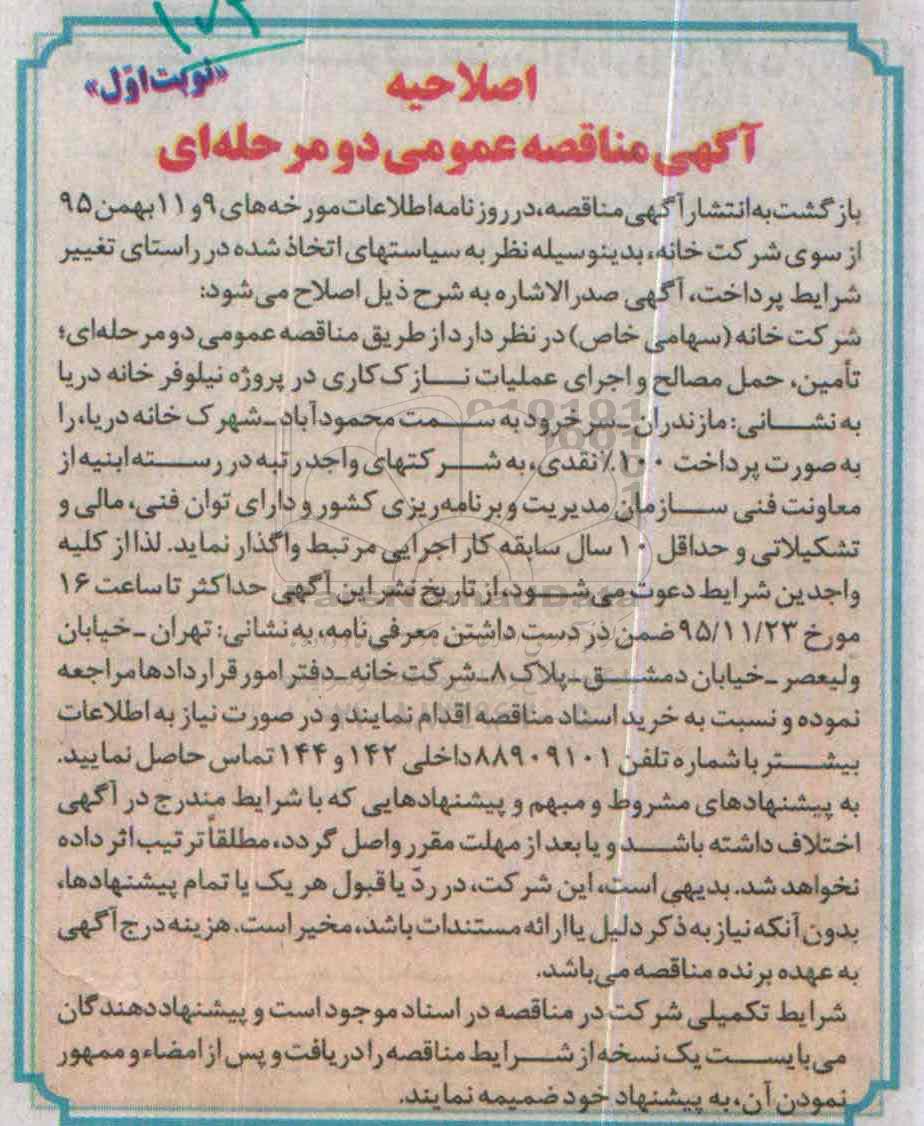 ۱۰۲
«نوبت اوّل»
اصلاحیه
آگهی مناقصه عمومی دو مرحله‌ای
بازگشت به انتشار آگهی مناقصه، در روزنامه اطلاعات مورخه‌های ۹ و ۱۱ بهمن ۹۵
از سوی شرکت خانه، بدینوسیله نظر به سیاستهای اتخاذ شده در راستای تغییر
شرایط پرداخت، آگهی صدرالاشاره به شرح ذیل اصلاح می‌شود:
شرکت خانه (سهامی خاص) در نظر دارد از طریق مناقصه عمومی دو مرحله‌ای؛
تأمین، حمل مصالح و اجرای عملیات نازک‌کاری در پروژه نیلوفر خانه دریا
به نشانی: مازندران ـ سرخرود به سمت محمودآباد ـ شهرک خانه دریا، را
به صورت پرداخت ۱۰۰٪ نقدی، به شرکتهای واجد رتبه در رسته ابنیه از
معاونت فنی سازمان مدیریت و برنامه‌ریزی کشور و دارای توان فنی، مالی و
تشکیلاتی و حداقل ۱۰ سال سابقه کار اجرایی مرتبط واگذار نماید. لذا از کلیه
واجدین شرایط دعوت می‌شود، از تاریخ نشر این آگهی حداکثر تا ساعت ۱۶
مورخ ۹۵/۱۱/۲۳ ضمن در دست داشتن معرفی‌نامه، به نشانی: تهران ـ خیابان
ولیعصر ـ خیابان دمشق ـ پلاک ۸ ـ شرکت خانه ـ دفتر امور قراردادها مراجعه
نموده و نسبت به خرید اسناد مناقصه اقدام نمایند و در صورت نیاز به اطلاعات
بیشتر با شماره تلفن ۸۸۹۰۹۱۰۱ داخلی ۱۴۲ و ۱۴۴ تماس حاصل نمایید.
به پیشنهادهای مشروط و مبهم و پیشنهادهایی که با شرایط مندرج در آگهی
اختلاف داشته باشد و یا بعد از مهلت مقرر واصل گردد، مطلقاً ترتیب اثر داده
نخواهد شد. بدیهی است، این شرکت، در ردّ یا قبول هر یک یا تمام پیشنهادها،
بدون آنکه نیاز به ذکر دلیل یا ارائه مستندات باشد، مخیر است. هزینه درج آگهی
به عهده برنده مناقصه می‌باشد.
شرایط تکمیلی شرکت در مناقصه در اسناد موجود است و پیشنهاددهندگان
می‌بایست یک نسخه از شرایط مناقصه را دریافت و پس از امضاء و ممهور
نمودن آن، به پیشنهاد خود ضمیمه نمایند.